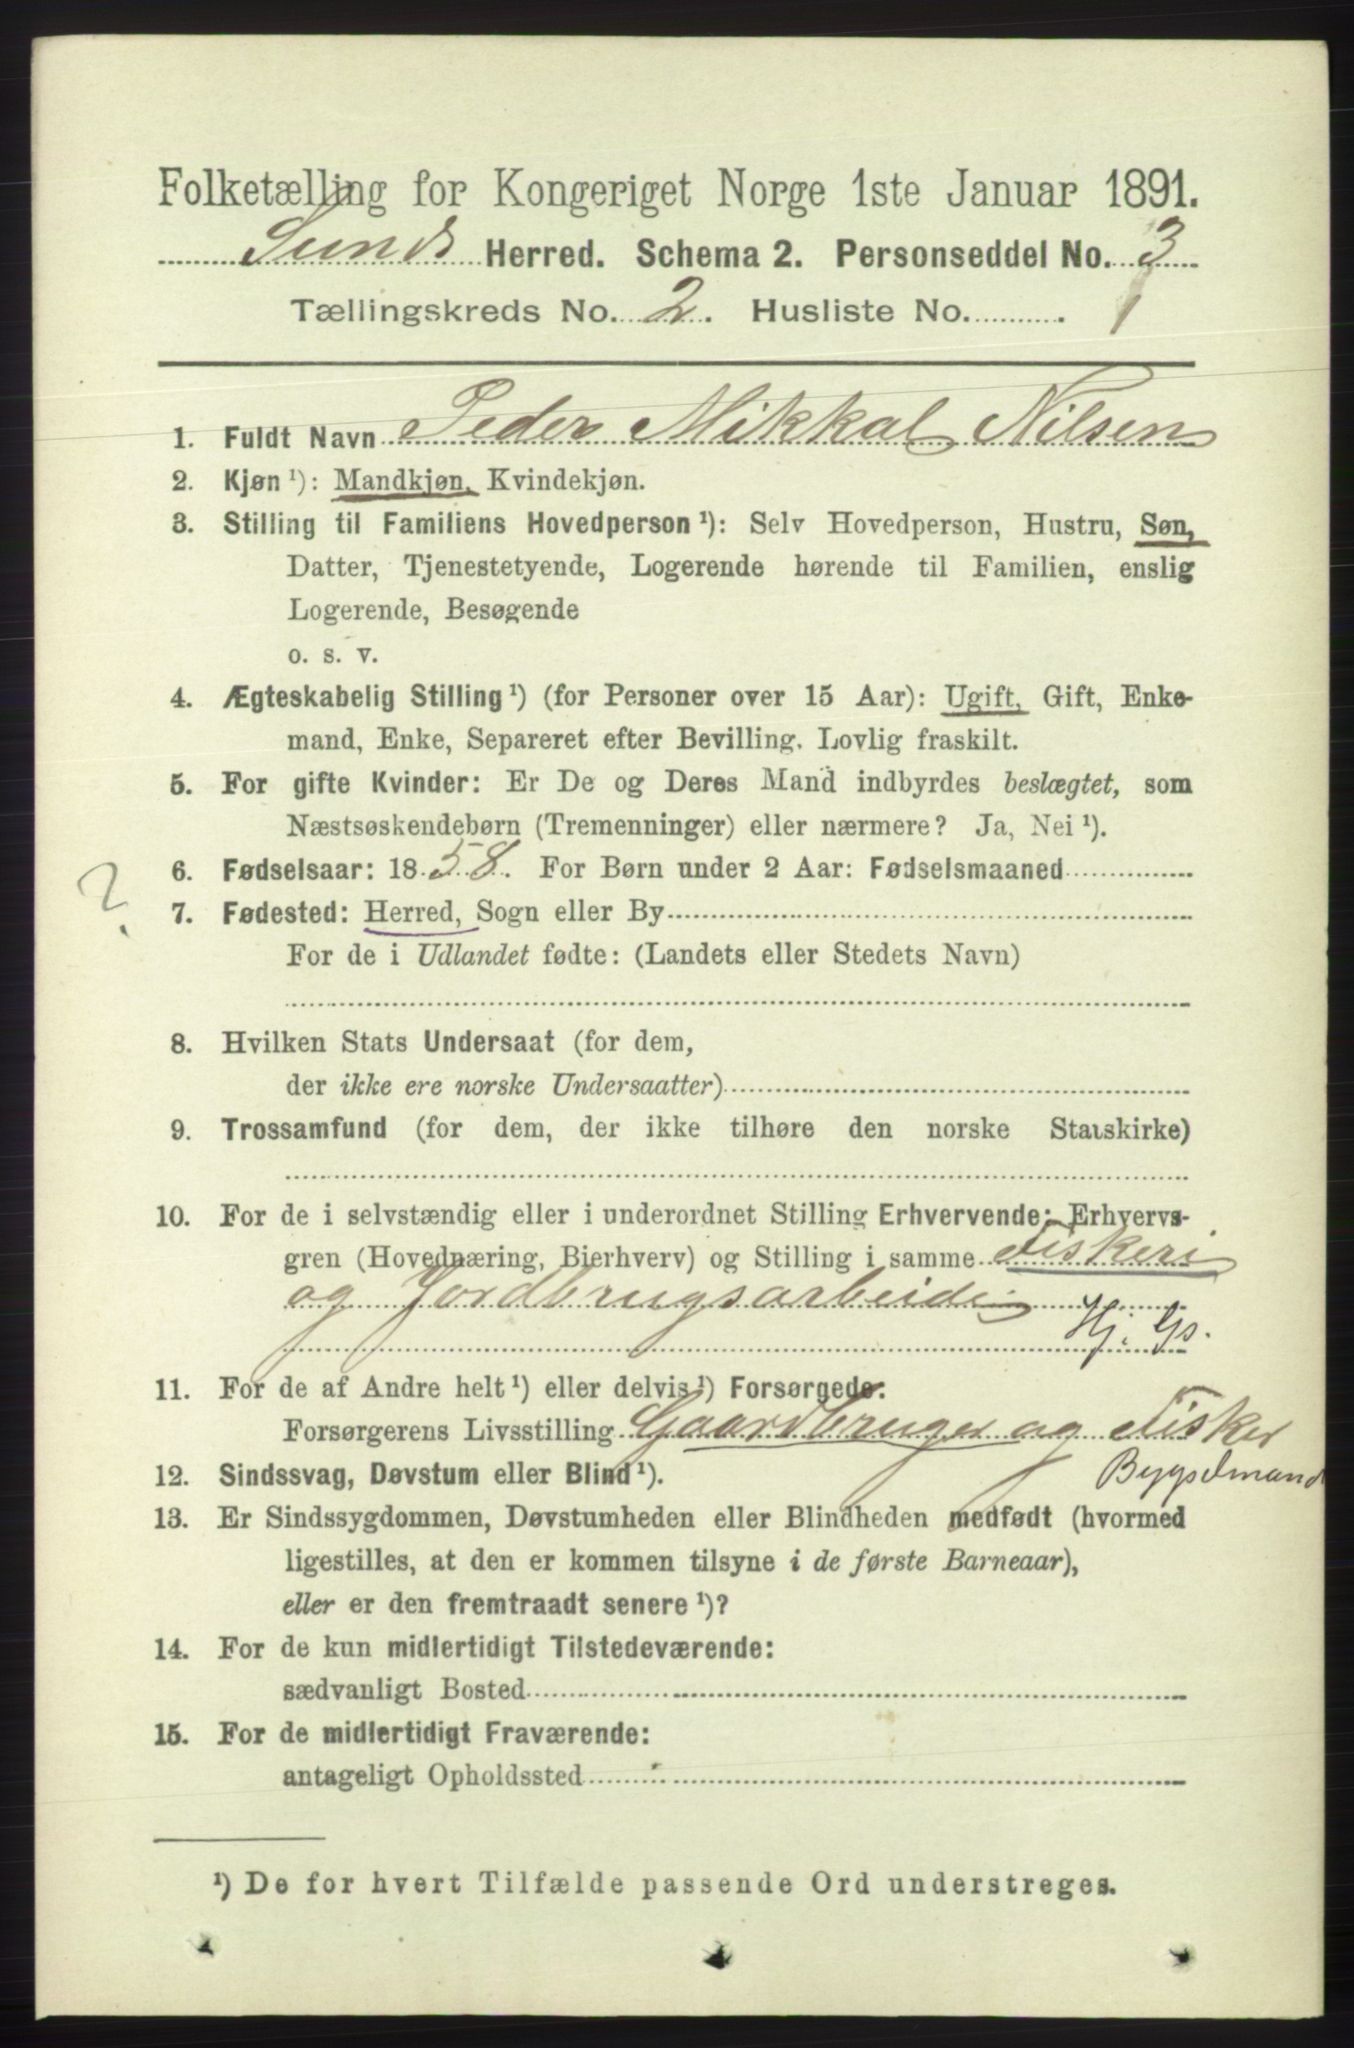 Folketælling for Kongeriget Norge 1ste Januar 1891.
Sund Herred. Schema 2. Personseddel No. 3
Tællingskreds No. 2. Husliste No. 1
1. Fuldt Navn Peder Mikkal Nilsen
2. Kjøn ¹): Mandkjøn, Kvindekjøn.
3. Stilling til Familiens Hovedperson ¹): Selv Hovedperson, Hustru, Søn,
Datter, Tjenestetyende, Logerende hørende til Familien, enslig
Logerende, Besøgende
o. s. v.
4. Ægteskabelig Stilling ¹) (for Personer over 15 Aar): Ugift, Gift, Enke-
mand, Enke, Separeret efter Bevilling. Lovlig fraskilt.
5. For gifte Kvinder: Er De og Deres Mand indbyrdes beslægtet, som
Næstsøskendebørn (Tremenninger) eller nærmere? Ja, Nei ¹).
6. Fødselsaar: 1858. For Børn under 2 Aar: Fødselsmaaned
?
7. Fødested: Herred, Sogn eller By
For de i Udlandet fødte: (Landets eller Stedets Navn)
8. Hvilken Stats Undersaat (for dem,
der ikke ere norske Undersaatter)
9. Trossamfund (for dem, der ikke tilhøre den norske Statskirke)
10. For de i selvstændig eller i underordnet Stilling Erhvervende: Erhvervs-
gren (Hovednæring, Bierhverv) og Stilling i samme Fiskeri
og Jordbrugsarbeide
Hj. Gs.
11. For de af Andre helt ¹) eller delvis ¹) Forsørgede:
Forsørgerens Livsstilling Gaardbruger og Fisker
Bygselmand
12. Sindssvag, Døvstum eller Blind ¹).
13. Er Sindssygdommen, Døvstumheden eller Blindheden medfødt (hvormed
ligestilles, at den er kommen tilsyne i de første Barneaar),
eller er den fremtraadt senere ¹)?
14. For de kun midlertidigt Tilstedeværende:
sædvanligt Bosted
15. For de midlertidigt Fraværende:
antageligt Opholdssted
¹) De for hvert Tilfælde passende Ord understreges.